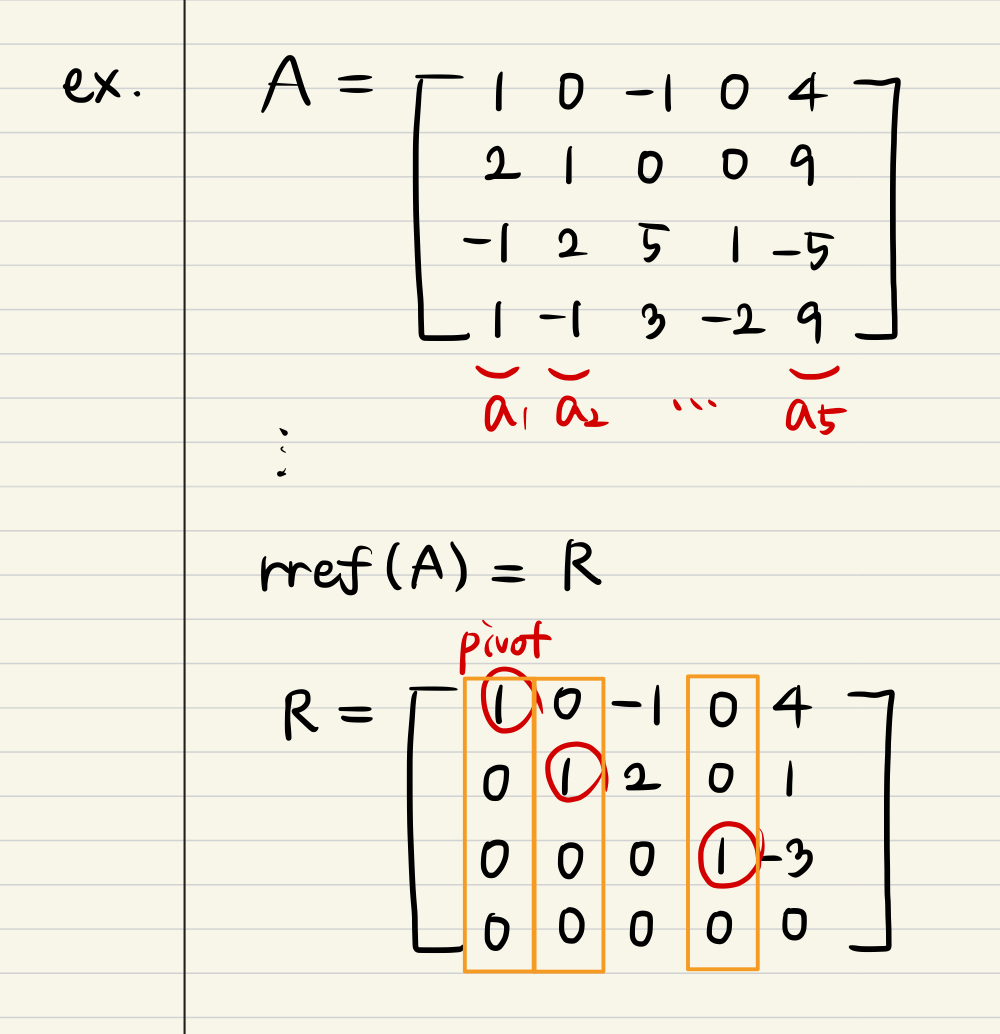 ex. A = [ 1 0 -1 0 4
2 1 0 0 9
-1 2 5 1 -5
1 -1 3 -2 9 ]
a₁ a₂ ... a₅
⋮
rref(A) = R
pivot
R = [ 1 0 -1 0 4
0 1 2 0 1
0 0 0 1 -3
0 0 0 0 0 ]